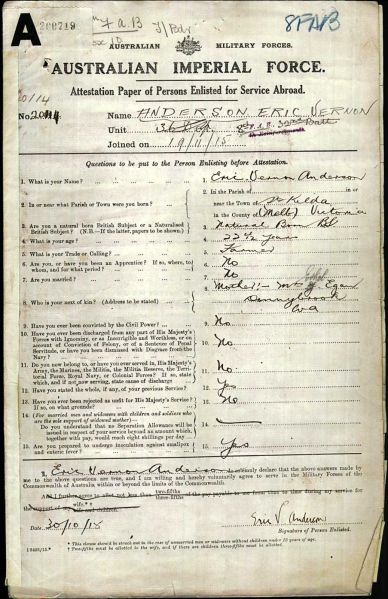 A
8FAB
AUSTRALIAN MILITARY FORCES.
AUSTRALIAN IMPERIAL FORCE.
Attestation Paper of Persons Enlisted for Service Abroad.
No. Name ANDERSON ERIC VERNON
Unit
Joined on 19/11/15
Questions to be put to the Person Enlisting before Attestation.
1. What is your Name? 1. Eric Vernon Anderson
2. In or near what Parish or Town were you born? 2. In the Parish of in or
near the Town of St Kilda
in the County of (Melb) Victoria
3. Are you a natural born British Subject or a Naturalised British Subject? (N.B.—If the latter, papers to be shown) 3. Natural Born
4. What is your age? 4. 22½ years
5. What is your Trade or Calling? 5. Farmer
6. Are you, or have you been an Apprentice? If so, where, to whom, and for what period? 6. No
7. Are you married? 7. No
8. Who is your next of kin? (Address to be stated) 8. Mother:- Mrs Egan
Donnybrook
WA
9. Have you ever been convicted by the Civil Power? 9. No
10. Have you ever been discharged from any part of His Majesty's Forces with Ignominy, or as Incorrigible and Worthless, or on account of Conviction of Felony, or of a Sentence of Penal Servitude, or have you been dismissed with Disgrace from the Navy? 10. No
11. Do you now belong to, or have you ever served in, His Majesty's Army, the Marines, the Militia, the Militia Reserve, the Territorial Force, Royal Navy, or Colonial Forces? If so, state which, and if not now serving, state cause of discharge 11. No
12. Have you stated the whole, if any, of your previous Service? 12. Yes
13. Have you ever been rejected as unfit for His Majesty's Service? If so, on what grounds? 13. No
14. (For married men and widowers with children and soldiers who are the sole support of widowed mother)—
Do you understand that no Separation Allowance will be issued in respect of your service beyond an amount which, together with pay, would reach eight shillings per day 14. —
15. Are you prepared to undergo inoculation against smallpox and enteric fever? 15. Yes
I, Eric Vernon Anderson do solemnly declare that the above answers made by
me to the above questions are true, and I am willing and hereby voluntarily agree to serve in the Military Forces of the
Commonwealth of Australia within or beyond the limits of the Commonwealth.
two-fifths
And I further agree to allot not less than of the pay payable to me from time to time during my service for
wife.*
the support of my and children.
Date 30/10/15 Eric V. Anderson
Signature of Person Enlisted.
* This clause should be struck out in the case of unmarried men or widowers without children under 18 years of age.
† Two-fifths must be allotted to the wife, and if there are children three-fifths must be allotted.